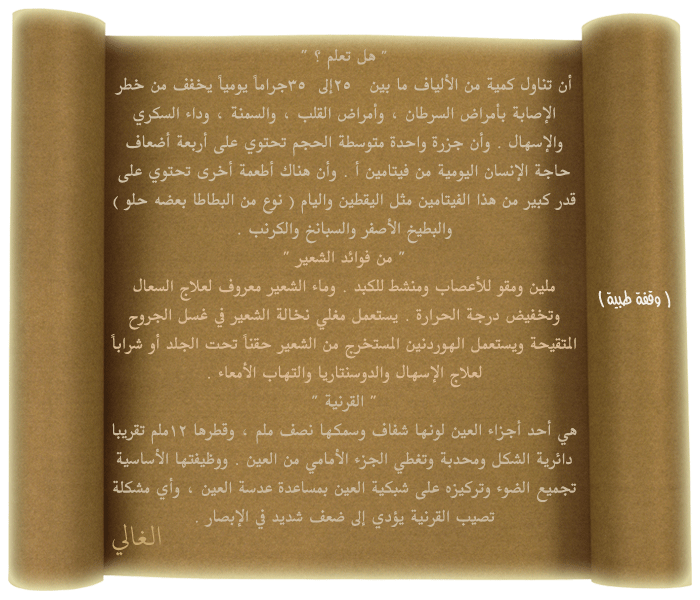 ( وقفة طبية )
" هل تعلم ؟ "
أن تناول كمية من الألياف ما بين ٢٥إلى ٣٥جراماً يومياً يخفف من خطر
الإصابة بأمراض السرطان ، وأمراض القلب ، والسمنة ، وداء السكري
والإسهال . وأن جزرة واحدة متوسطة الحجم تحتوي على أربعة أضعاف
حاجة الإنسان اليومية من فيتامين أ . وأن هناك أطعمة أخرى تحتوي على
قدر كبير من هذا الفيتامين مثل اليقطين واليام ( نوع من البطاطا بعضه حلو )
والبطيخ الأصفر والسبانخ والكرنب .
" من فوائد الشعير "
ملين ومقو للأعصاب ومنشط للكبد . وماء الشعير معروف لعلاج السعال
وتخفيض درجة الحرارة . يستعمل مغلي نخالة الشعير في غسل الجروح
المتقيحة ويستعمل الهوردنين المستخرج من الشعير حقناً تحت الجلد أو شراباً
لعلاج الإسهال والدوسنتاريا والتهاب الأمعاء .
" القرنية "
هي أحد أجزاء العين لونها شفاف وسمكها نصف ملم ، وقطرها ١٢ملم تقريبا
دائرية الشكل ومحدبة وتغطي الجزء الأمامي من العين . ووظيفتها الأساسية
تجميع الضوء وتركيزه على شبكية العين بمساعدة عدسة العين ، وأي مشكلة
تصيب القرنية يؤدي إلى ضعف شديد في الإبصار .
الغالي